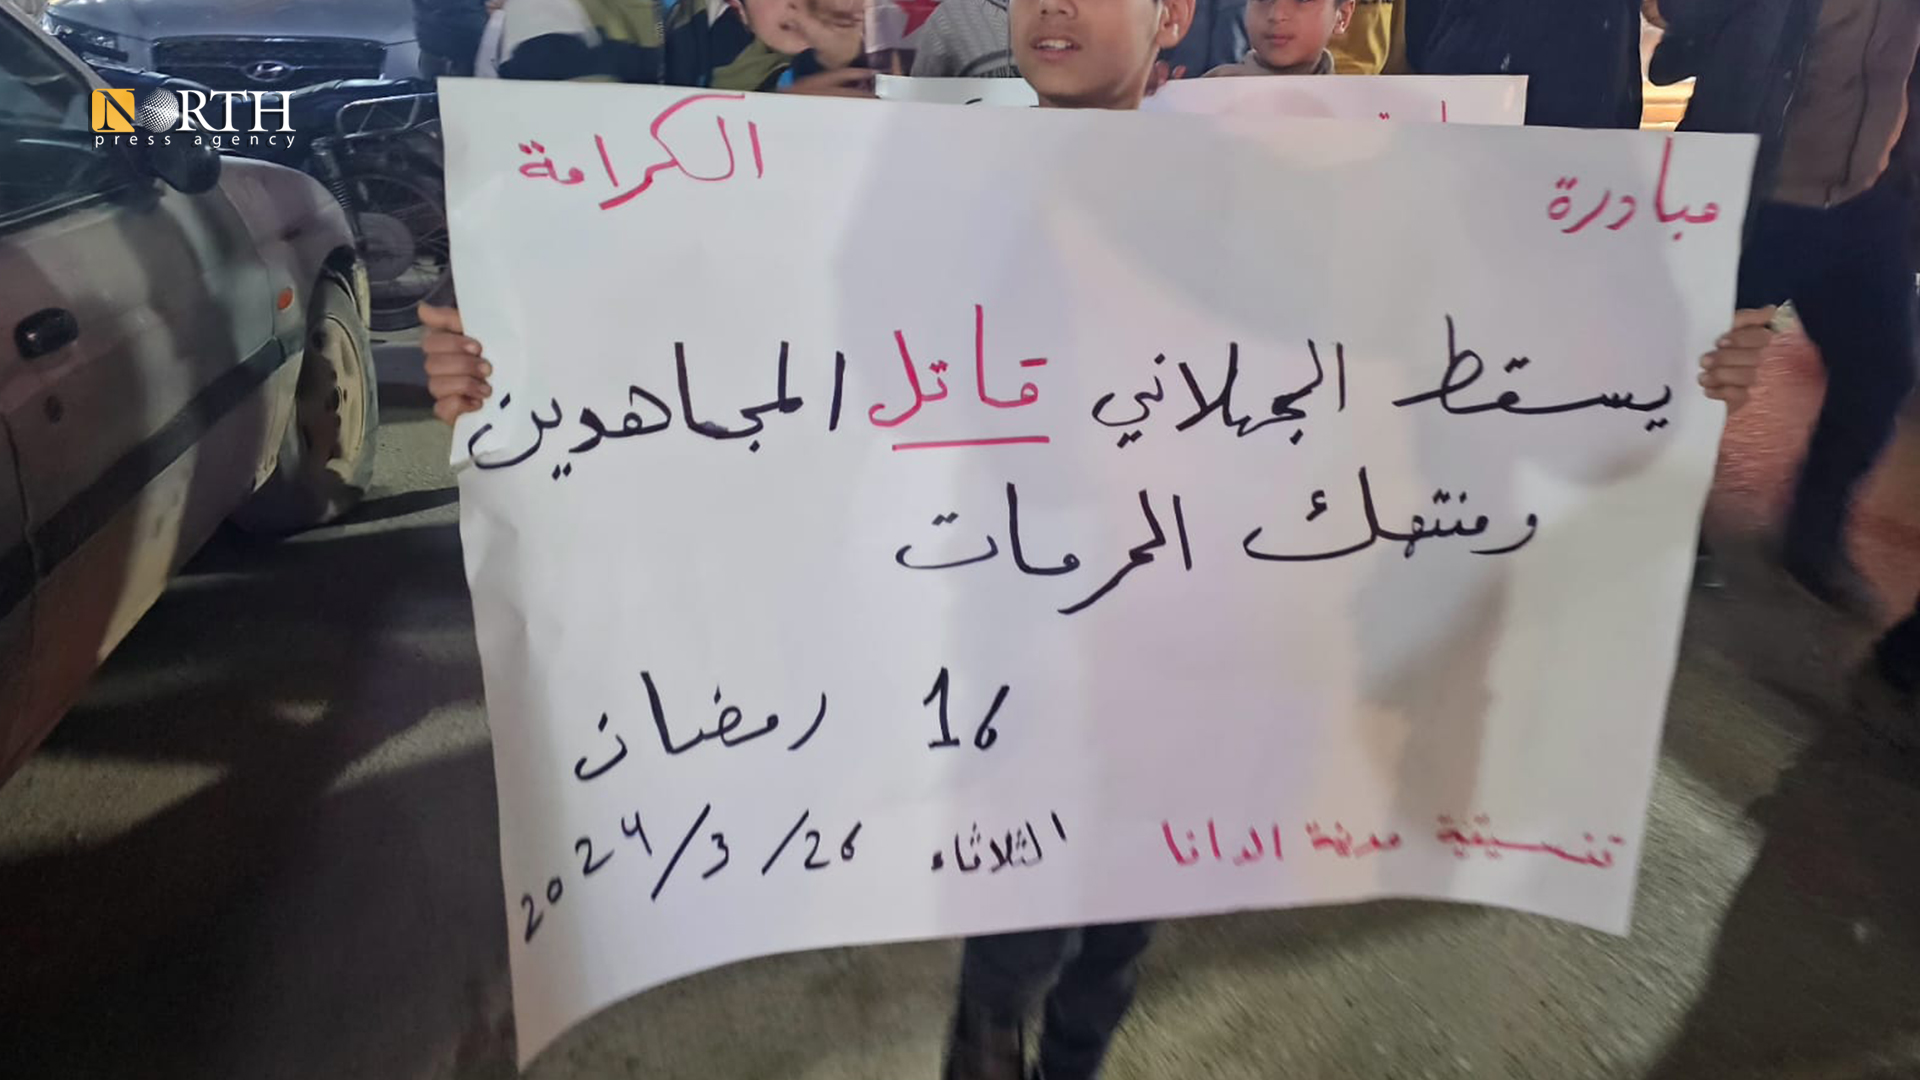 NORTH
press agency
مبادرة الكرامة
يسقط الجهلاني قاتل المجاهدين
ومنتهك الحرمات
16 رمضان
تنسيقية مدينة الدانا الثلاثاء 26/3/2024